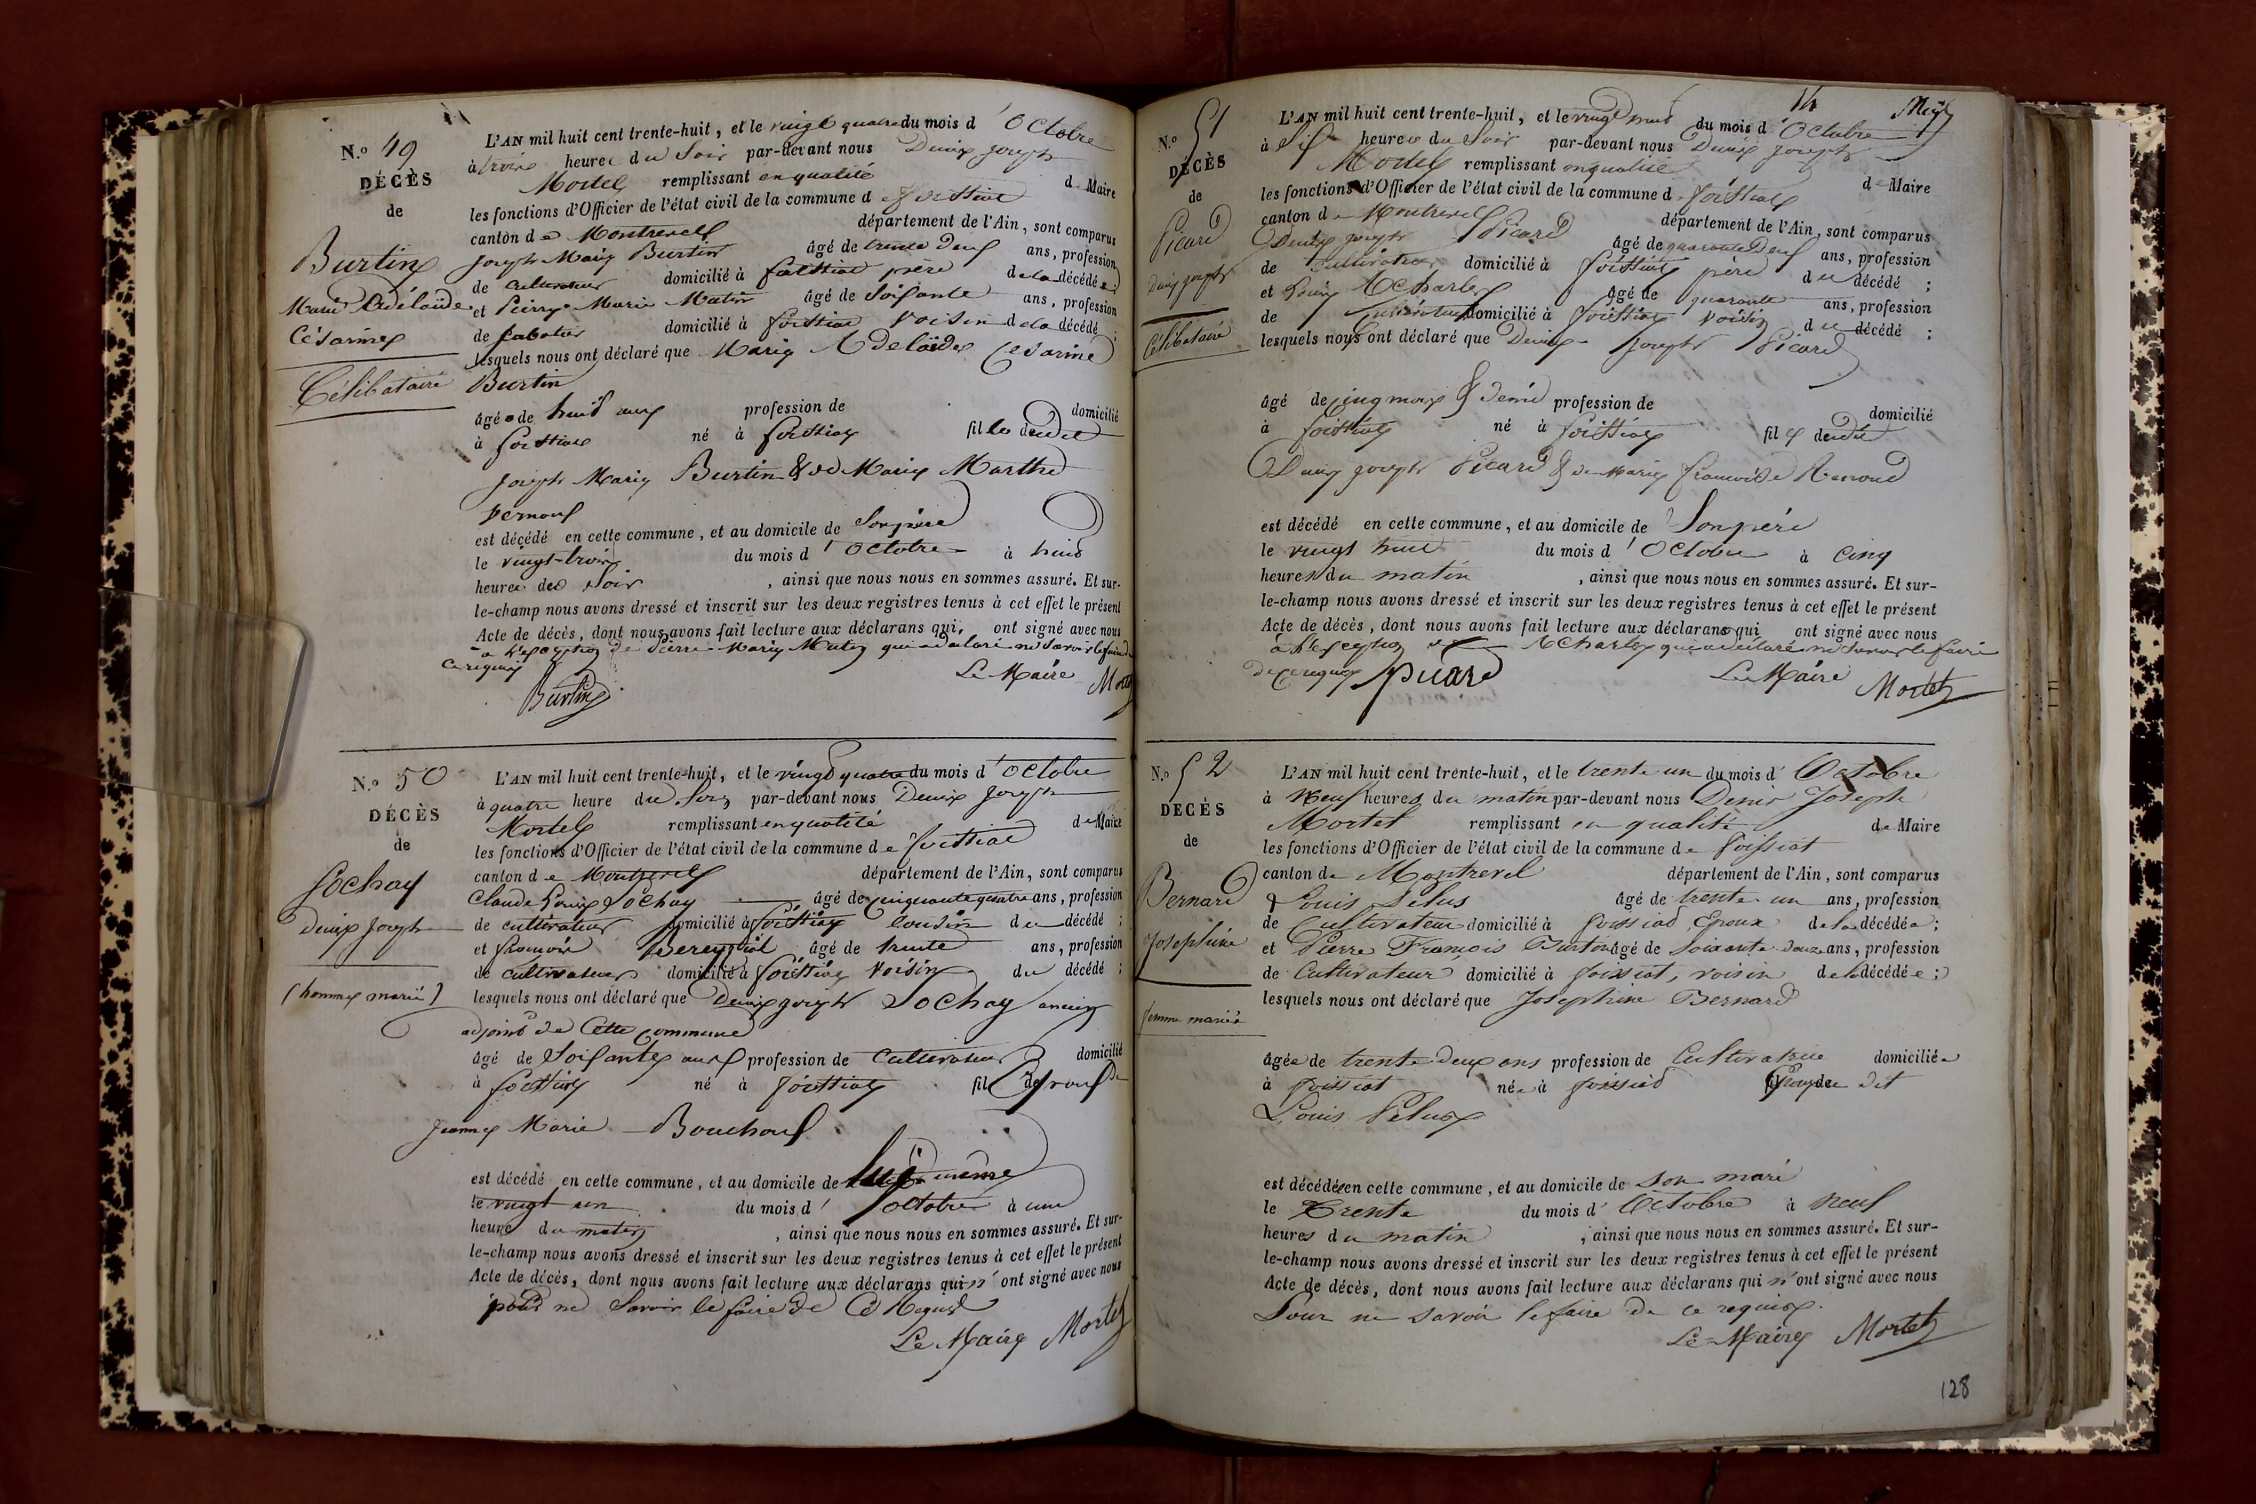 N.º 49
DÉCÈS
de
Burtin
Marie Adélaïde
Césarine
Célibataire
L'AN mil huit cent trente-huit, et le vingt quatre du mois d'Octobre
à trois heures du Soir par-devant nous Denis Joseph
Mortel remplissant en qualité de Maire
les fonctions d'Officier de l'état civil de la commune de foissiat
canton de Montrevel département de l'Ain, sont comparus
Joseph Marie Burtin âgé de trente deux ans, profession
de cultivateur domicilié à foissiat père de la décédée;
et Pierre Marie Matin âgé de Soixante ans, profession
de Sabotier domicilié à foissiat voisin de la décédé;
lesquels nous ont déclaré que Marie Adelaïde Césarine
Burtin
âgée de huit ans profession de domicilié
à foissiat né à foissiat fille dudit
Joseph Marie Burtin & de Marie Marthe
Vernoux
est décédé en cette commune, et au domicile de Son père
le vingt-trois du mois d'Octobre à huit
heures du Soir, ainsi que nous nous en sommes assuré. Et sur-
le-champ nous avons dressé et inscrit sur les deux registres tenus à cet effet le présent
Acte de décès, dont nous avons fait lecture aux déclarans qui ont signé avec nous
à l'exception de Pierre Marie Matin qui a déclaré ne Savoir le faire de
ce requis
Burtin Le Maire Mortel
N.º 50
DÉCÈS
de
Sochay
Denis Joseph
(homme marié)
L'AN mil huit cent trente-huit, et le vingt quatre du mois d'Octobre
à quatre heure du Soir par-devant nous Denis Joseph
Mortel remplissant en qualité de Maire
les fonctions d'Officier de l'état civil de la commune de foissiat
canton de Montrevel département de l'Ain, sont comparus
Claude Louis Sochay âgé de cinquante quatre ans, profession
de cultivateur domicilié à foissiat cousin du décédé;
et françois âgé de trente ans, profession
de cultivateur domicilié à foissiat voisin du décédé;
lesquels nous ont déclaré que Denis Joseph Sochay ancien
adjoint de Cette Commune
âgé de Soixante ans profession de Cultivateur domicilié
à foissiat né à foissiat fil Epoux de
Jeanne Marie Bouchoux
est décédé en cette commune, et au domicile de lui même
le vingt un du mois d'octobre à une
heure du matin, ainsi que nous nous en sommes assuré. Et sur-
le-champ nous avons dressé et inscrit sur les deux registres tenus à cet effet le présent
Acte de décès, dont nous avons fait lecture aux déclarans qui n'ont signé avec nous
pour ne Savoir le faire de Ce Requis
Le Maire Mortel
14
N.º 51
DÉCÈS
de
Picard
Denis Joseph
Célibataire
L'AN mil huit cent trente-huit, et le vingt huit du mois d'Octobre
à Six heures du Soir par-devant nous Denis Joseph
Mortel remplissant en qualité de Maire
les fonctions d'Officier de l'état civil de la commune de foissiat
canton de Montrevel département de l'Ain, sont comparus
Denis Joseph Picard âgé de quarante Deux ans, profession
de Cultivateur domicilié à foissiat père du décédé;
et Louis Acharles âgé de quarante ans, profession
de Cultivateur domicilié à foissiat voisin du décédé;
lesquels nous ont déclaré que Denis Joseph Picard
âgé de cinq mois & demi profession de domicilié
à foissiat né à foissiat fils dudit
Denis Joseph Picard & de Marie françoise Renoud
est décédé en cette commune, et au domicile de Son père
le vingt huit du mois d'Octobre à cinq
heures du matin, ainsi que nous nous en sommes assuré. Et sur-
le-champ nous avons dressé et inscrit sur les deux registres tenus à cet effet le présent
Acte de décès, dont nous avons fait lecture aux déclarans qui ont signé avec nous
à l'exception de Acharles qui a déclaré ne Savoir le faire
de ce requis Picard Le Maire Mortel
N.º 52
DÉCÈS
de
Bernard
Josephine
femme mariée
L'AN mil huit cent trente-huit, et le trente un du mois d'Octobre
à Neuf heures du matin par-devant nous Denis Joseph
Mortel remplissant en qualité de Maire
les fonctions d'Officier de l'état civil de la commune de foissiat
canton de Montrevel département de l'Ain, sont comparus
Louis Pelus âgé de trente un ans, profession
de Cultivateur domicilié à foissiat Epoux de la décédée;
et Pierre François Burtin âgé de Soixante douze ans, profession
de Cultivateur domicilié à foissiat, voisin de la décédée;
lesquels nous ont déclaré que Josephine Bernard
âgée de trente deux ans profession de Cultivatrice domiciliée
à foissiat née à foissiat Epouse du dit
Louis Pelus
est décédée en cette commune, et au domicile de son mari
le Trente du mois d'Octobre à neuf
heures du matin, ainsi que nous nous en sommes assuré. Et sur-
le-champ nous avons dressé et inscrit sur les deux registres tenus à cet effet le présent
Acte de décès, dont nous avons fait lecture aux déclarans qui n'ont signé avec nous
Pour ne savoir le faire de ce requis.
Le Maire Mortel
128